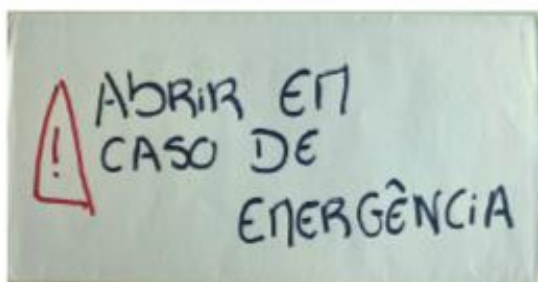 ABRIR EM
! CASO DE
EMERGÊNCIA